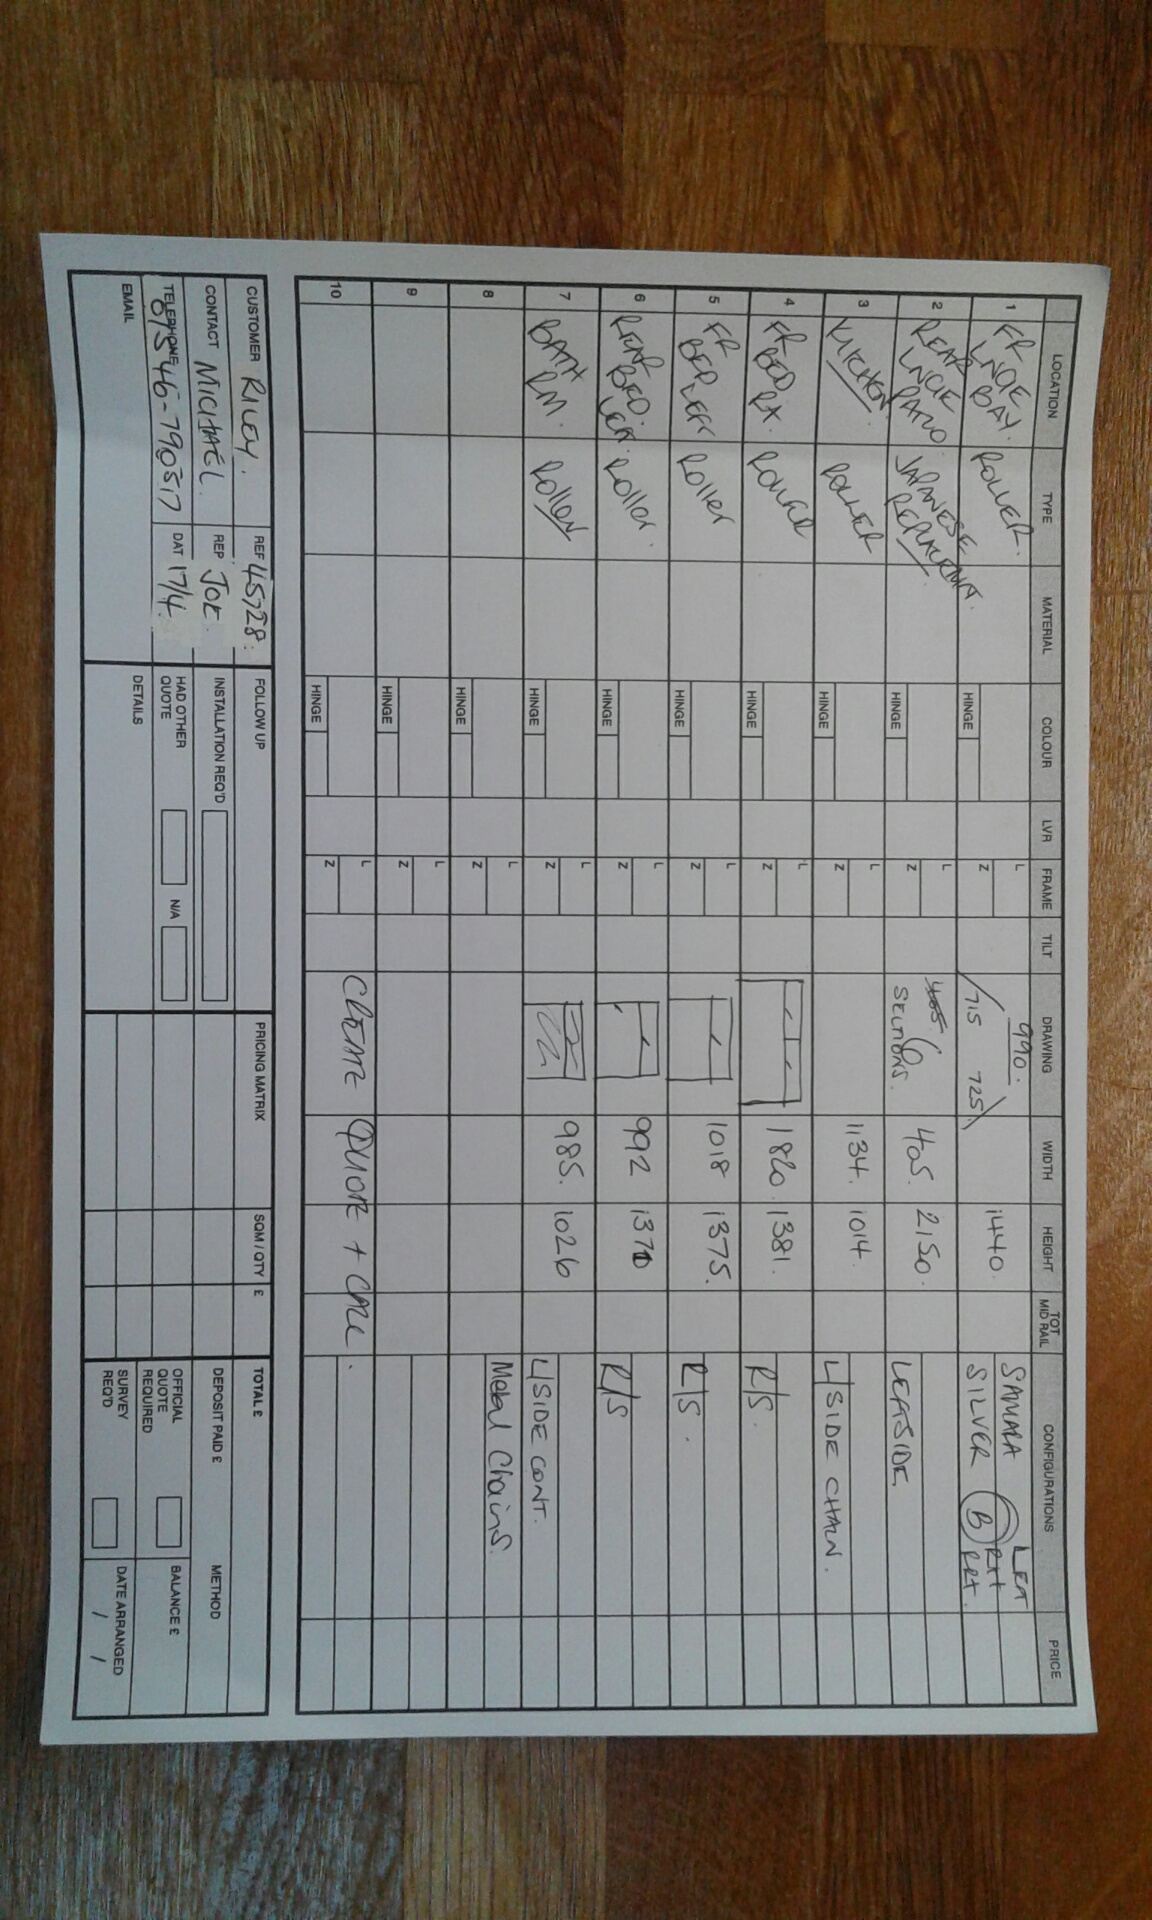 LOCATION TYPE MATERIAL COLOUR LVR FRAME TILT DRAWING WIDTH HEIGHT TOT MID RAIL CONFIGURATIONS PRICE
1 FR LNGE BAY. ROLLER. HINGE L Z 990. 715 725 1440. SAMARA SILVER LEFT B RHT RHT
2 REAR LNGE PATIO JAPANESE HINGE L Z 6 SECTIONS. 405. 2150. LEFTSIDE
3 KITCHEN ROLLER HINGE L Z 1134. 1014. L/SIDE CHAIN.
4 FR BED RX. ROLLER HINGE L Z 1820. 1381. R/S.
5 FR BED LEFT Roller HINGE L Z 1018 1375. R/S.
6 REAR BED. Roller. HINGE L Z 992 1370 R/S
7 BATH RM. Roller HINGE L Z 985. 1026 L/SIDE CONT.
8 HINGE L Z Metal Chains.
9 HINGE L Z
10 HINGE L Z CREATE QUOTE + CALL.
CUSTOMER RILEY. REF 45728. FOLLOW UP PRICING MATRIX SQM / QTY £ TOTAL £
CONTACT MICHAEL. REP JOE. INSTALLATION REQ'D DEPOSIT PAID £ METHOD
TELEPHONE 07546-790517 DAT 17/4. HAD OTHER QUOTE N/A OFFICIAL QUOTE REQUIRED BALANCE £
EMAIL DETAILS SURVEY REQ'D DATE ARRANGED / /